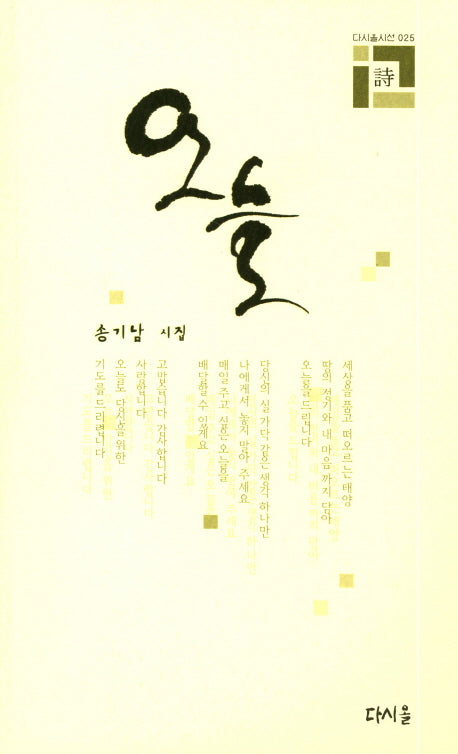 다시올시선 025
詩
오늘
송기남 시집
세상을 품고 떠오르는 태양
땅의 정기와 내 마음까지 담아
오늘을 드립니다
당신의 실 가닥 같은 생각 하나만
나에게서 놓지 말아 주세요
매일 주고 싶은 오늘을
배달할 수 있게요
고맙습니다 감사합니다
사랑합니다
오늘도 당신을 위한
기도를 드립니다
다시올